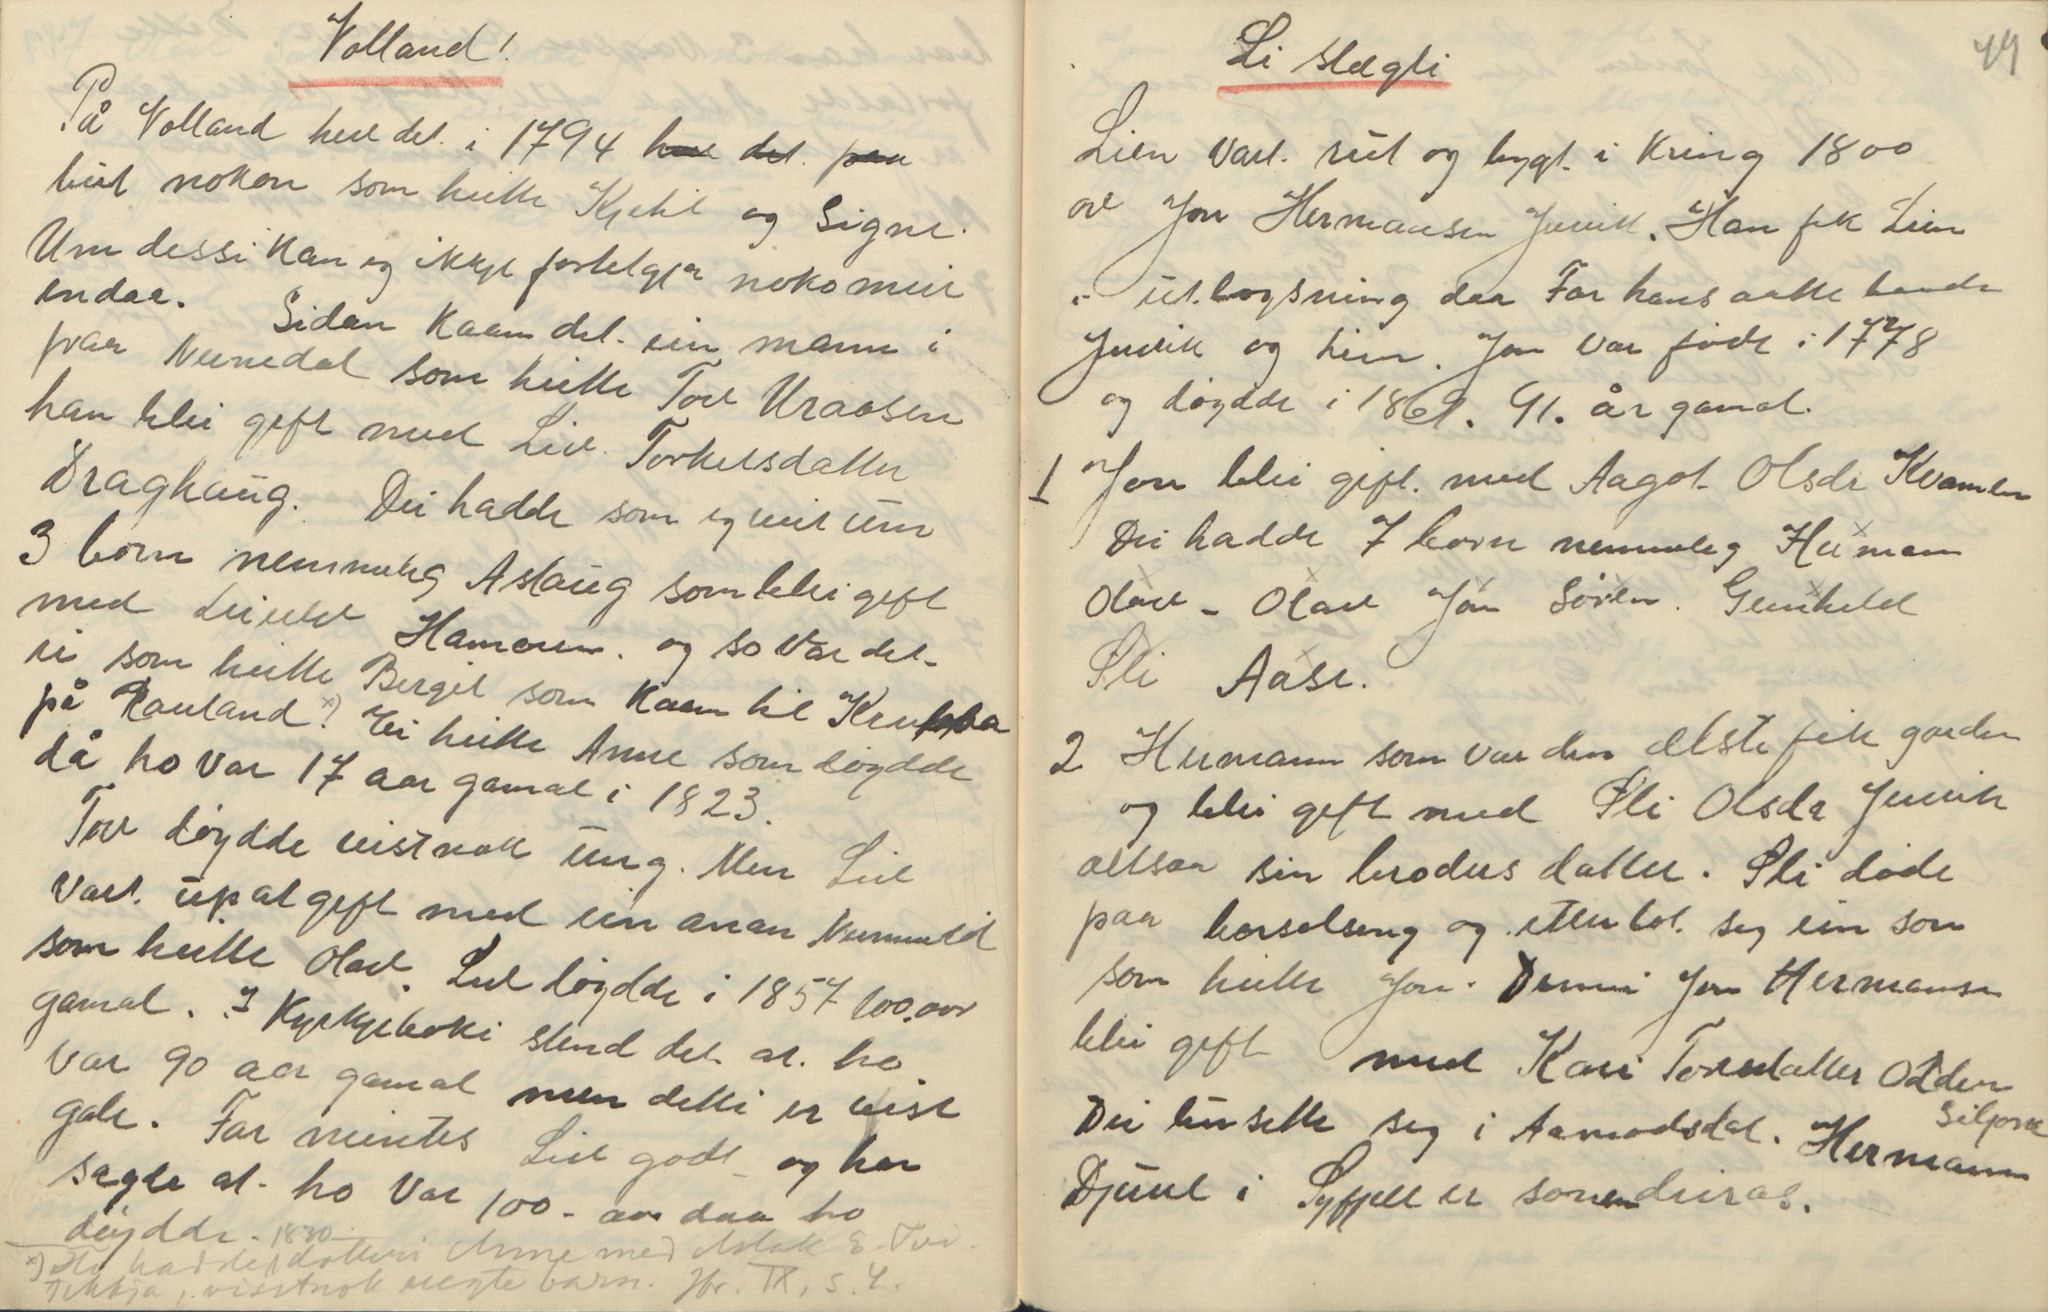 Volland!
På Volland heve det i 1794 heve det paa
búit nokon som heitte Kjetil og Signe.
Um dessi kan eg ikkje fortelgja noko meir
endaa. Sidan kaam det ein mann i
fraa Numedal som heitte Tov Uraasen
han blei gift med Liv Torkelsdatter
Draghaúg. Dei hadde som eg veit úm
3 born nemmeleg Aslaúg som blei gift
med Leivev Hamaren. og so var det
ei som heitte Bergit som kaam til Krussa
på Rauland x). Ei heitte Anne som døydde
då ho var 17 aar gamal i 1823.
Tov døydde veistnok úng. Men Liv
vart úpatgift med ein anan Numedøl
som heitte Olav. Liv døydde i 1857 100 aar
gamal. I Kyrkjeboki stend det at ho
var 90 aar gamal men detti er vist
gale. Far mintes Liv godt og han
sagde at ho var 100 aar daa ho
døydde. 1830
x) Ho hadde dotteri Anne med Aslak E. Tvei-
tekkja, visstnok uegte barn. Hr. IX, s. 4.
49
Li slægti
Lien vart rút og bygt i kring 1800
av Jon Hermansen Juvik. Han fek Lien
i út.løysning daa Far hans aatte baade
Juvik og Lien. Jon var født i 1778
og døydde i 1869. 91. år gamal.
1 Jon blei gift med Aagot Olsdr Kvamben
Dei hadde 7 born nemmeleg Hermann
Olav - Olav Jon Søren. Gunhild
Sli Aase.
2 Hermann som var den ælste fek garden
og blei gift med Sli Olsdr Juvik
altsaa sin broders datter. Sli døde
paa barselseng og etterlot seg ein son
som heitte Jon. Denni Jon Hermansen
blei gift med Kari Torsdatter Odden
Siljord
Dei búsette seg i Aamodsdal. Hermann
Djuve i Syftell er soneen deiras.